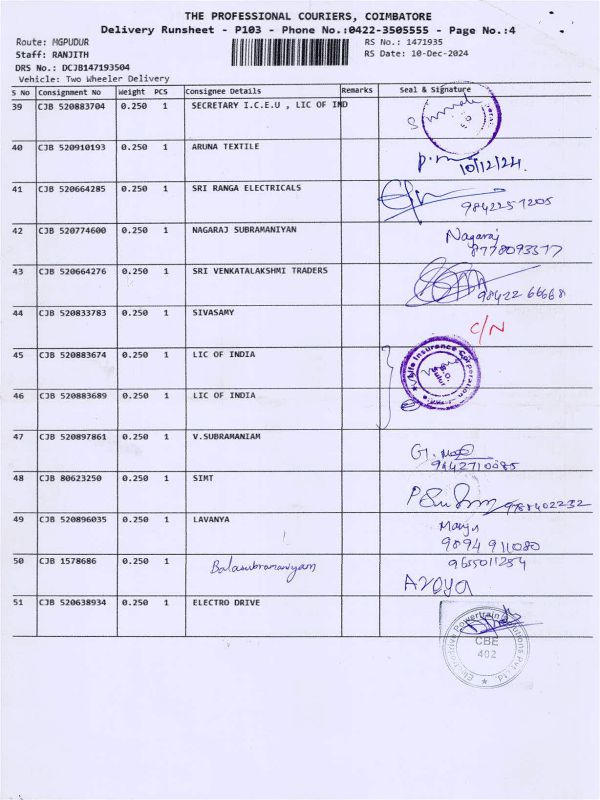 THE PROFESSIONAL COURIERS, COIMBATORE
Delivery Runsheet - P103 - Phone No.:0422-3505555 - Page No.:4
Route: MGPUDUR
RS No.: 1471935
Staff: RANJITH
RS Date: 10-Dec-2024
DRS No.: DCJB147193504
Vehicle: Two Wheeler Delivery
S No Consignment No Weight PCS Consignee Details Remarks Seal & Signature
39 CJB 520883704 0.250 1 SECRETARY I.C.E.U , LIC OF IND
40 CJB 520910193 0.250 1 ARUNA TEXTILE
10/12/24.
41 CJB 520664285 0.250 1 SRI RANGA ELECTRICALS
9842251205
42 CJB 520774600 0.250 1 NAGARAJ SUBRAMANIYAN Nagaraj
8778093377
43 CJB 520664276 0.250 1 SRI VENKATALAKSHMI TRADERS
98422 66668
44 CJB 520833783 0.250 1 SIVASAMY C/N
45 CJB 520883674 0.250 1 LIC OF INDIA
Life Insurance Corporation
46 CJB 520883689 0.250 1 LIC OF INDIA
47 CJB 520897861 0.250 1 V.SUBRAMANIAM
9442710085
48 CJB 80623250 0.250 1 SIMT
9788402232
49 CJB 520896035 0.250 1 LAVANYA Manju
9894 911080
50 CJB 1578686 0.250 1 Balasubramaniyam 9655011254
51 CJB 520638934 0.250 1 ELECTRO DRIVE
Electrodrive Powertrain Solutions Pvt Ltd.
CBE
402